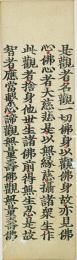 是觀者名觀一切佛身以觀佛身故亦見佛
心佛心者大慈悲是以無緣慈攝諸衆生作
此觀者捨身他世生諸佛前得無生忍是故
智者應當繫心諦觀無量壽佛觀無量壽佛